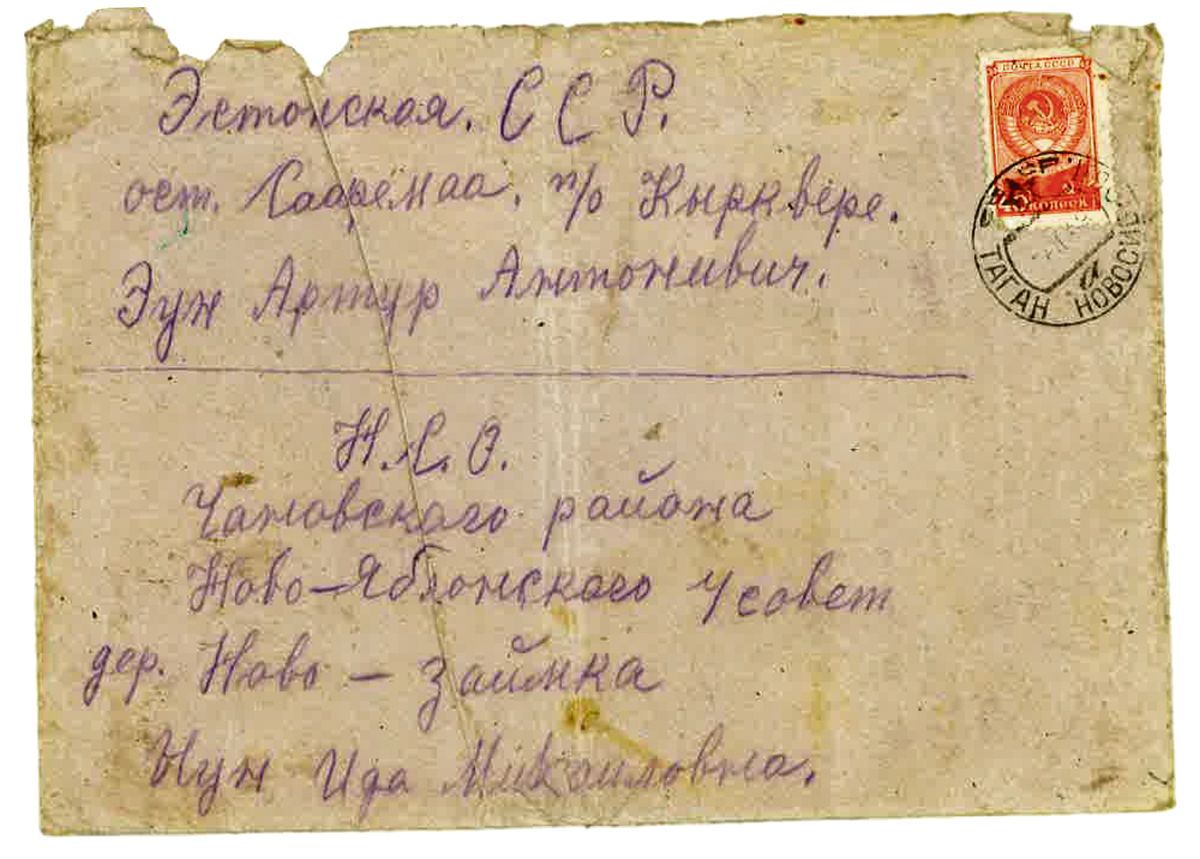 ПОЧТА СССР
40 КОПЕЕК
ТАГАН НОВОСИБ
Эстонская. С С Р.
ост. Сааремаа. п/о Кырквере.
Эун Артур Антонивич.
Н.С.О.
Чановского района
Ново-Яблонского усовет
дер. Ново – Займка
Ида Михаиловна.